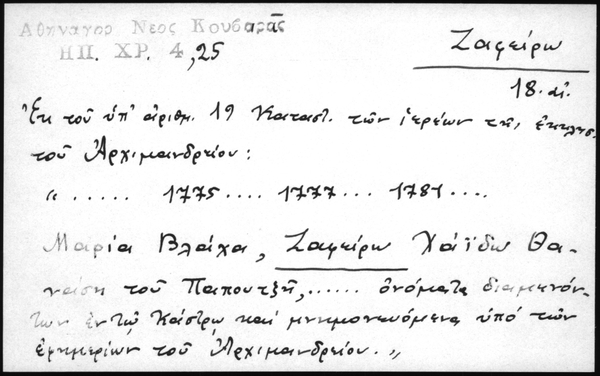 Αθηναγορ Νεος Κουβαρᾶς
ΗΠ. ΧΡ. 4, 25
Ζαφείρω
18. αἰ.
Ἐκ τοῦ ὑπ' ἀριθμ. 19 Καταστ. τῶν ἱερέων τῆς ἐκκλησ.
τοῦ Ἀρχιμανδρείου:
" ..... 1775 .... 1777 .... 1781 ....
Μαρία Βλάχα, Ζαφείρω Χάϊδω Θα-
νάση τοῦ Παπουτζῆ, ...... ὀνόματα διαμενόν-
των ἐν τῷ Κάστρῳ καί μνημονευόμενα ὑπό τῶν
ἐφημερίων τοῦ Ἀρχιμανδρείου. "